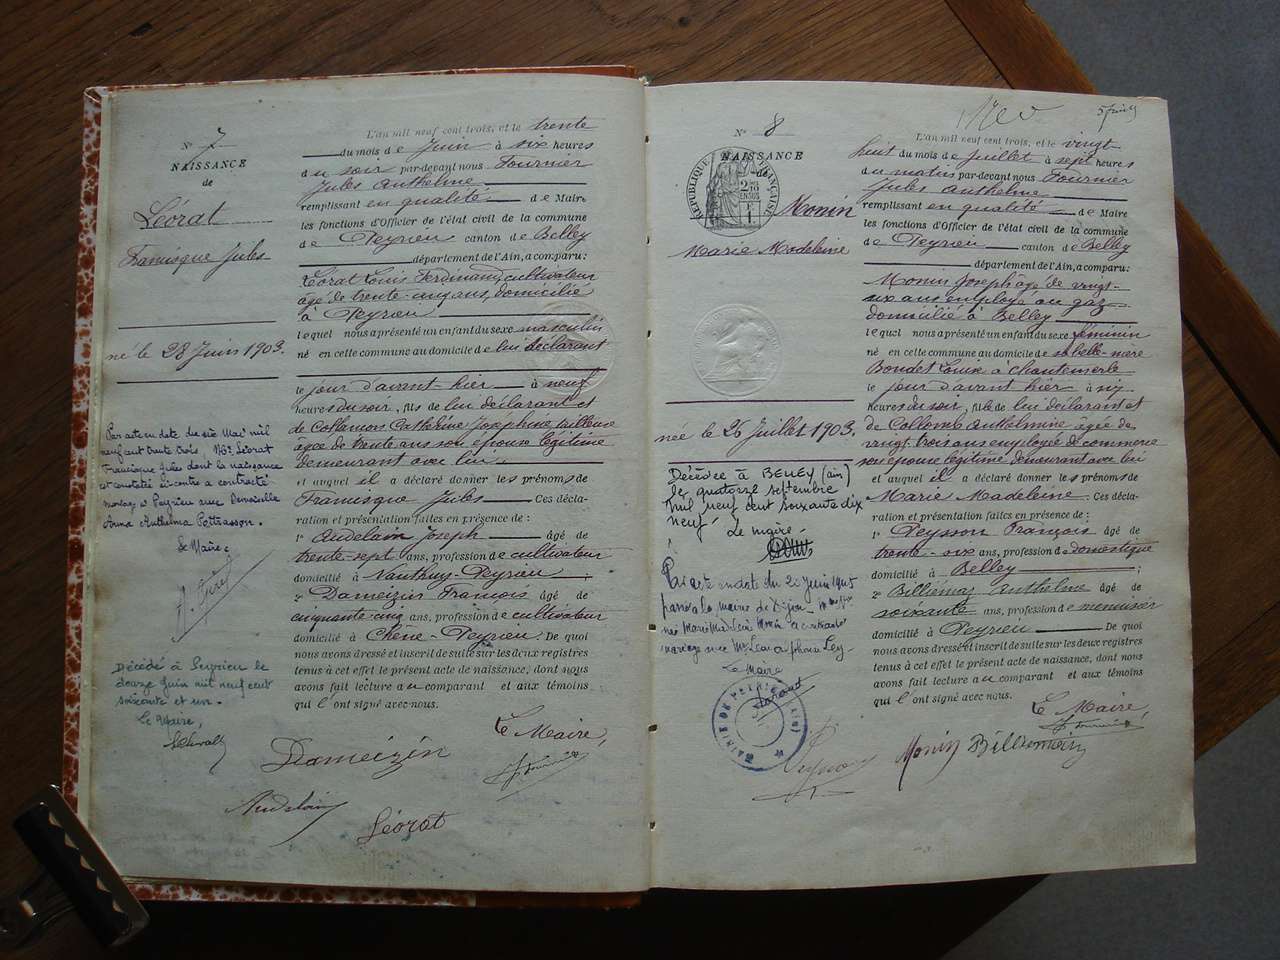 N° 7
NAISSANCE
de
Léorat
Francisque Jules
né le 28 Juin 1903.
Par acte en date du six Mai mil
neuf cent trente trois, Mr Léorat
Francisque Jules dont la naissance
est constatée ci-contre a contracté
mariage à Peyrieu avec Demoiselle
Anna Anthelma Pettrasson.
Le Maire,
Décédé à Peyrieu le
douze Juin mil neuf cent
soixante et un.
Le Maire,
L'an mil neuf cent trois, et le trente
du mois de Juin à six heures
du soir par-devant nous Fournier
Jules Anthelme
remplissant en qualité de Maire
les fonctions d'Officier de l'état civil de la commune
de Peyrieu canton de Belley
département de l'Ain, a comparu:
Léorat Louis Ferdinand, cultivateur
âgé de trente-cinq ans, domicilié
à Peyrieu
lequel nous a présenté un enfant du sexe masculin
né en cette commune au domicile de lui déclarant
le jour d'avant-hier à neuf
heures du soir, fils de lui déclarant et
de Collomon Catherine Joséphine tailleuse
âgée de trente ans son épouse légitime
demeurant avec lui
et auquel il a déclaré donner les prénoms de
Francisque Jules Ces décla-
ration et présentation faites en présence de :
1° Audelain Joseph âgé de
trente-sept ans, profession de cultivateur
domicilié à Nanthuy-Peyrieu ;
2° Dameizin François âgé de
cinquante-cinq ans, profession de cultivateur
domicilié à Chêne-Peyrieu De quoi
nous avons dressé et inscrit de suite sur les deux registres
tenus à cet effet le présent acte de naissance, dont nous
avons fait lecture au comparant et aux témoins
qui l'ont signé avec nous.
Le Maire,
Dameizin
Audelain
Léorat
N° 8
NAISSANCE
de
RÉPUBLIQUE FRANÇAISE
Monin
Marie Madeleine
née le 26 Juillet 1903.
Décédée à BELLEY (ain)
le quatorze septembre
mil neuf cent soixante dix
neuf. Le maire.
Par acte en date du 20 Juin 1925
passé à la mairie de Dijon
Marie Madeleine Monin a contracté
mariage avec Mr Ley
Le Maire
MAIRIE DE PEYRIEU (AIN)
5 Juin
L'an mil neuf cent trois, et le vingt
huit du mois de Juillet à sept heures
du matin par-devant nous Fournier
Jules Anthelme
remplissant en qualité de Maire
les fonctions d'Officier de l'état civil de la commune
de Peyrieu canton de Belley
département de l'Ain, a comparu:
Monin Joseph âgé de vingt-
six ans employé au gaz
domicilié à Belley
lequel nous a présenté un enfant du sexe féminin
né en cette commune au domicile de sa belle-mère
Boudet Louise à Chantemerle
le jour d'avant hier à six
heures du soir, fille de lui déclarant et
de Collomb Anthelmine âgée de
vingt-trois ans employée de commerce
son épouse légitime demeurant avec lui
et auquel il a déclaré donner les prénoms de
Marie Madeleine. Ces décla-
ration et présentation faites en présence de :
1° Peysson François âgé de
trente-six ans, profession de domestique
domicilié à Belley ;
2° Billiémaz Anthelme âgé de
soixante ans, profession de menuisier
domicilié à Peyrieu De quoi
nous avons dressé et inscrit de suite sur les deux registres
tenus à cet effet le présent acte de naissance, dont nous
avons fait lecture au comparant et aux témoins
qui l'ont signé avec nous.
Le Maire,
Monin